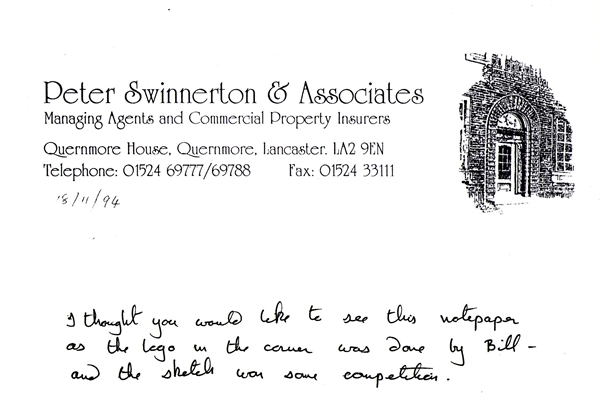 Peter Swinnerton & Associates
Managing Agents and Commercial Property Insurers
Quernmore House, Quernmore, Lancaster. LA2 9EN
Telephone: 01524 69777/69788 Fax: 01524 33111
18/11/94
I thought you would like to see this notepaper
as the logo in the corner was done by Bill –
and the sketch won some competition.